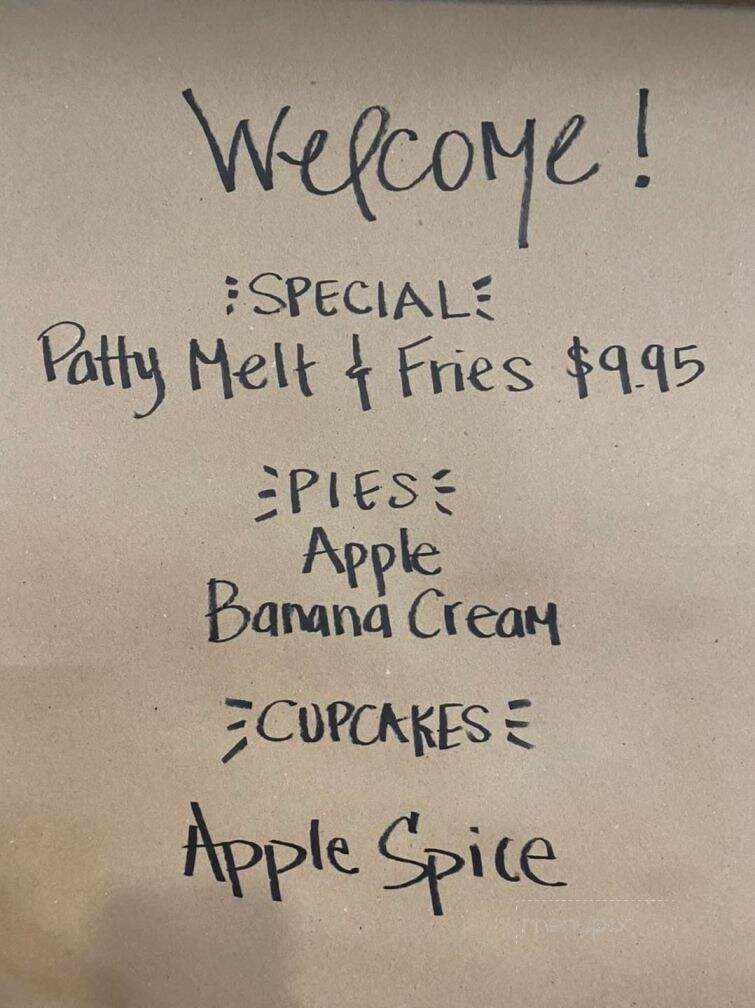 Welcome!
SPECIAL
Patty Melt & Fries $9.95
PIES
Apple
Banana Cream
CUPCAKES
Apple Spice
menupix